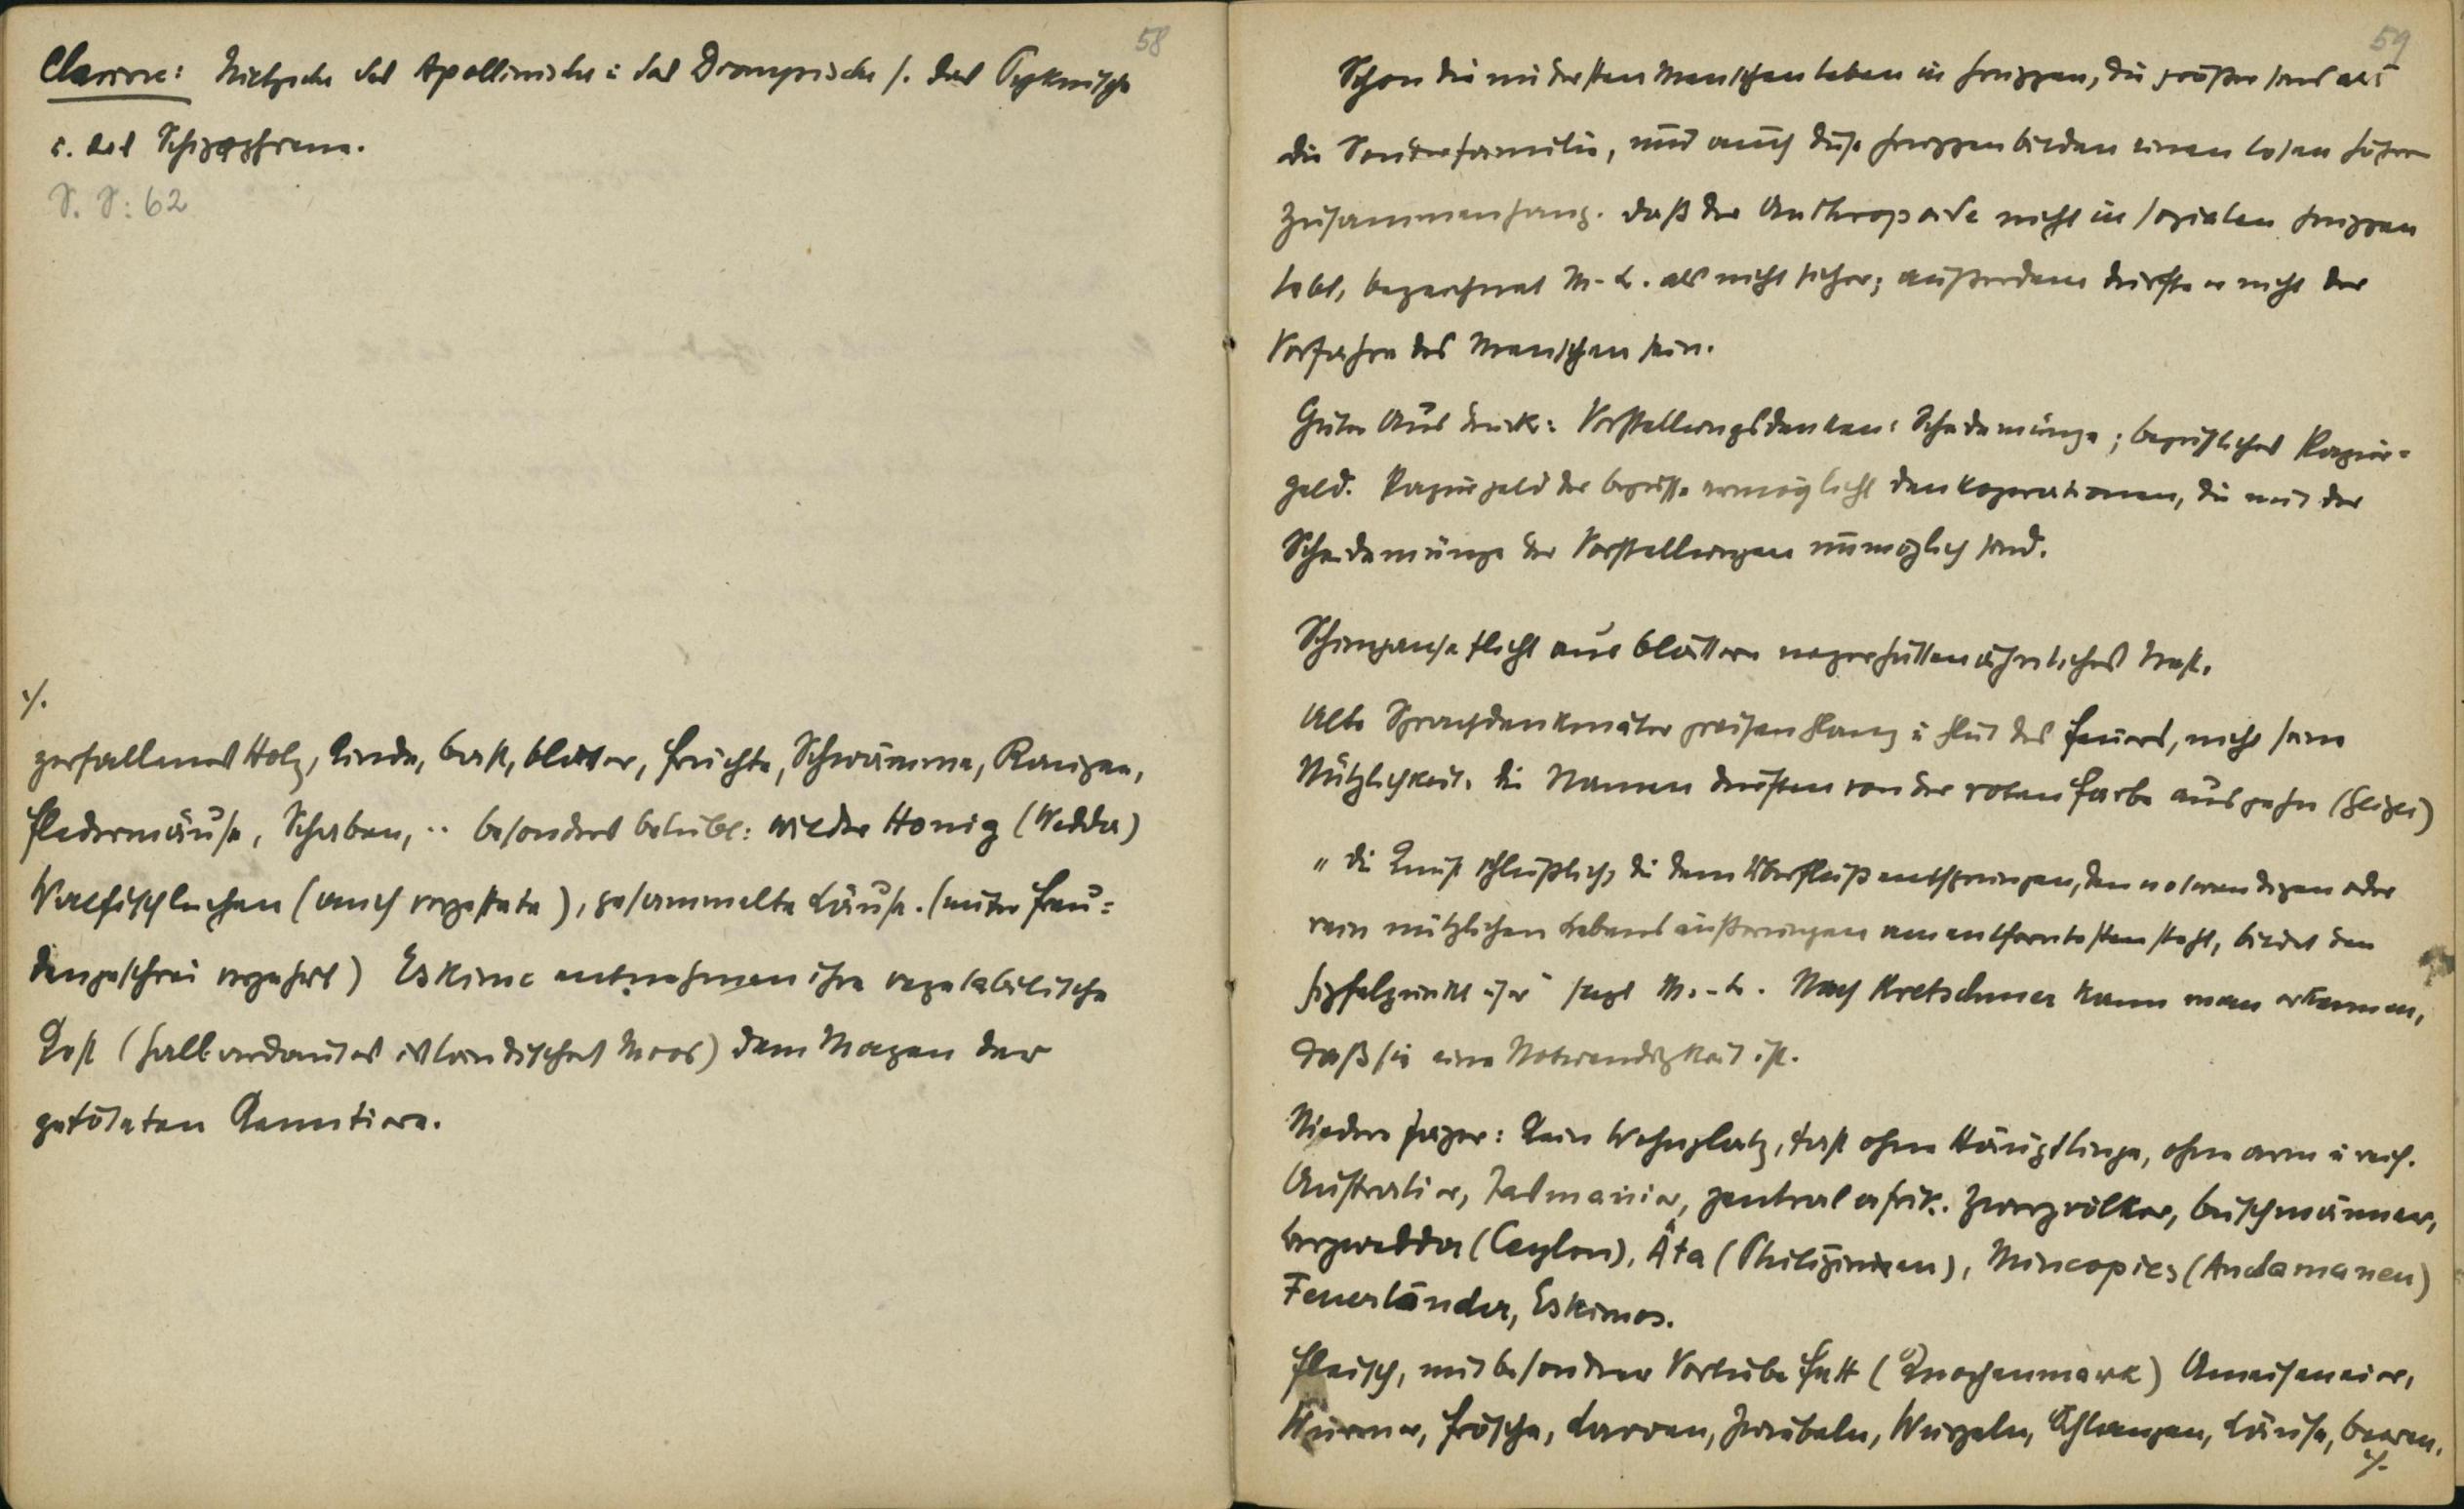 58
Clarisse: Nietzsche das Apollinische u das Dionysische s. das Pyknische
u. das Schizophrene.
S. S: 62
./.
zerfallenes Holz, Rinde, Bast, Blätter, Früchte, Schwämme, Raupen,
Fledermäuse, Schaben, .. besonders beliebt: wilder Honig (Wedda)
Walfischleichen (auch verpestete), gesammelte Läuse. (unter Freu=
dengeschrei verzehrt) Eskimo entnehmen ihre vegetabilische
Kost (halbverdautes isländisches Moos) dem Magen der
getöteten Renntiere.
59
Schon die niedersten Menschen leben in Gruppen, die größer sind als
die Sonderfamilie, und auch diese Gruppen bilden einen losen höhern
Zusammenhang. Daß der Anthropoide nicht in sozialen Gruppen
lebt, bezeichnet M.-L. als nicht sicher; außerdem dürfte er nicht der
Vorfahre des Menschen sein.
Guter Ausdruck: Vorstellungsdenken: Scheidemünze; begriffliches Papier=
geld. Papiergeld der Begriffe ermöglicht Denkoperationen, die mit der
Scheidemünze der Vorstellungen unmöglich sind.
Schimpanse flicht aus Blättern negerhüttenähnliches Nest.
Alte Sprachdenkmäler preisen Glanz u Glut des Feuers, nicht seine
Nützlichkeit. Die Namen dürften von der roten Farbe ausgehn (Geiger)
„Die Kunst schließlich, die dem Überfluß entsprungen, den notwendigen oder
rein nützlichen Lebensäußerungen am entferntesten steht, bildet den
Gipfelpunkt usw“ sagt M.-L. Nach Kretschmer kann man erkennen,
daß sie eine Notwendigkeit ist.
Niedere Jäger: Kein Wohnplatz, fast ohne Häuptlinge, ohne arm u reich.
Australier, Tasmanier, zentralafrik. Zwergvölker, Buschmänner,
Bergwedda (Ceylon), Äta (Philippinen), Mincopies (Andamanen)
Feuerländer, Eskimos.
Fleisch, mit besondrer Vorliebe Fett (Knochenmark) Ameiseneier,
Würmer, Frösche, Larven, Zwiebeln, Wurzeln, Schlangen, Läuse, Beeren,
./.